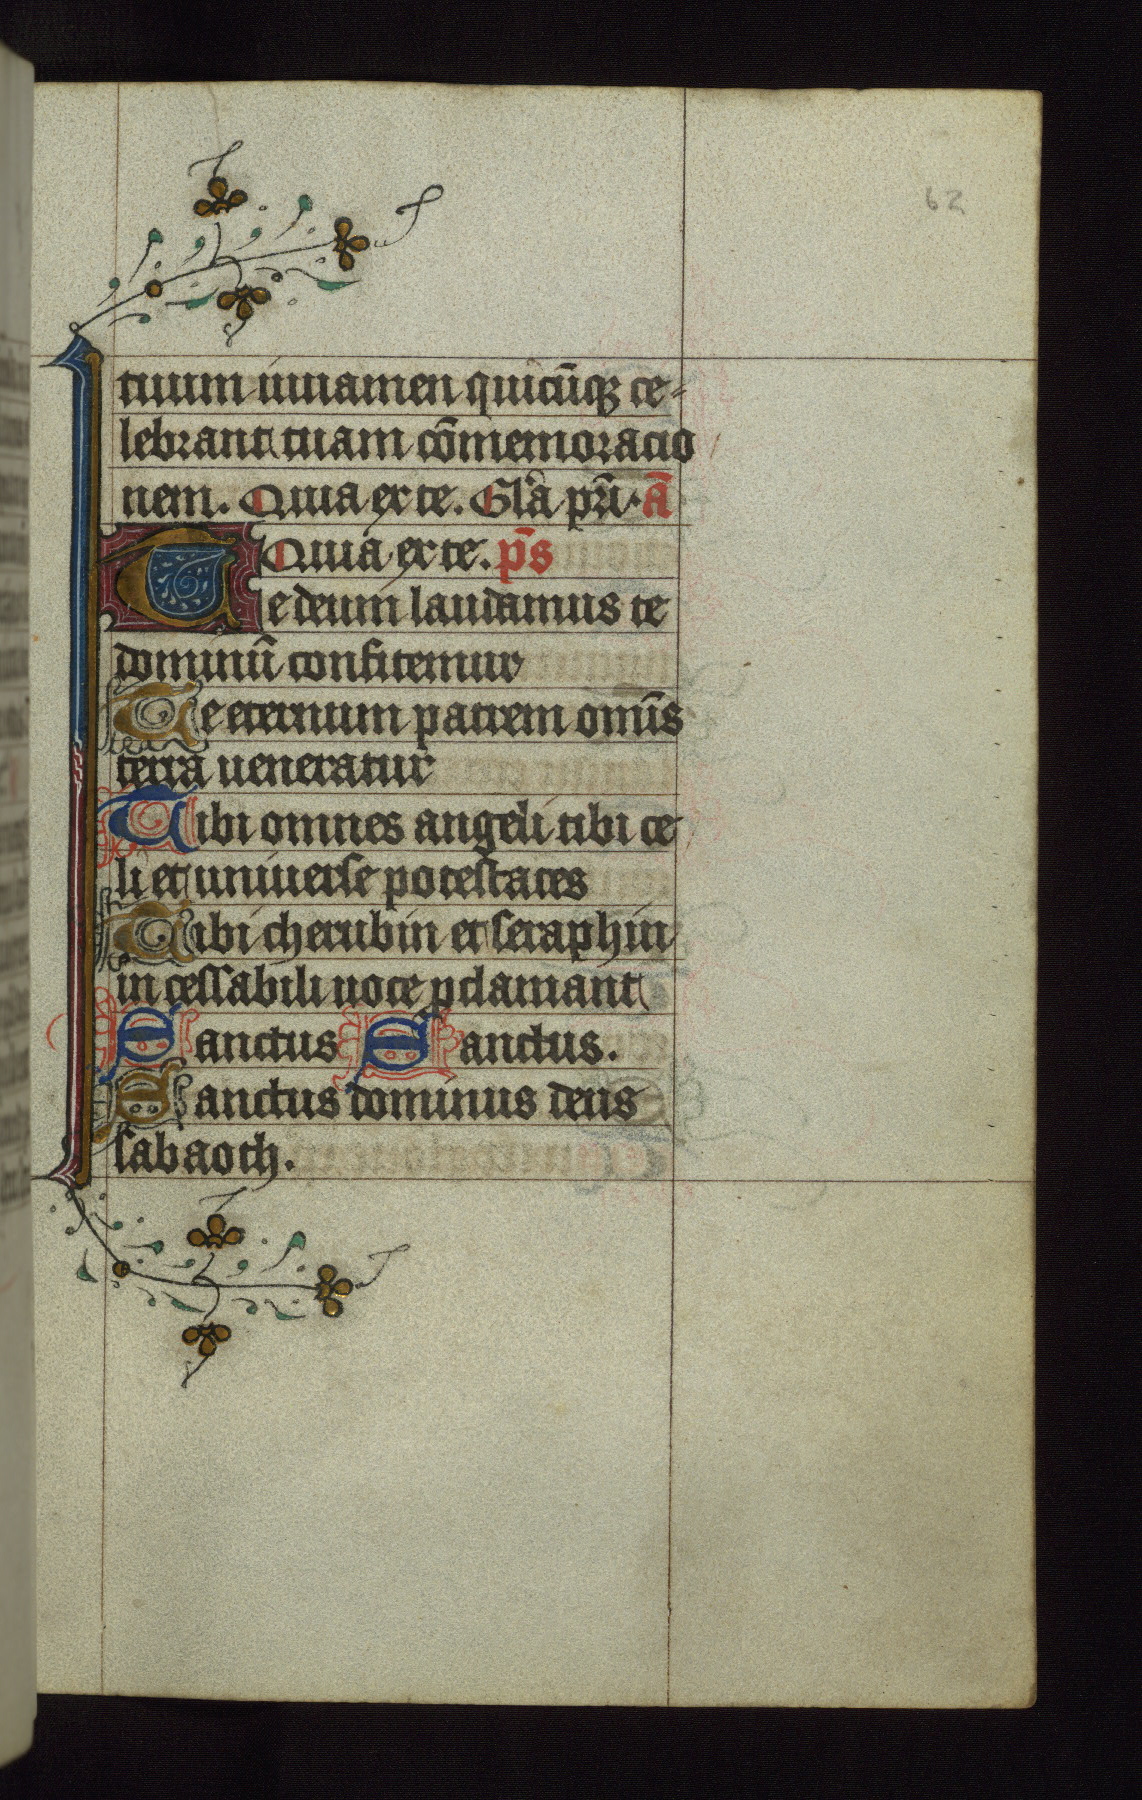 62
tuum iuuamen quicūqꝫ ce-
lebrant tuam cōmemoracio
nem. Quia ex te. Gl'a pr̄i. ā
Quia ex te. p̄s
Te deum laudamus te
dominū confitemur
Te eternum patrem omīs
terra ueneratur
Tibi omnes angeli tibi ce
li et uniuerse potestates
Tibi cherubin et seraphin
in cessabili uoce ꝓclamant
Sanctus Sanctus.
Sanctus dominus deus
sabaoth.